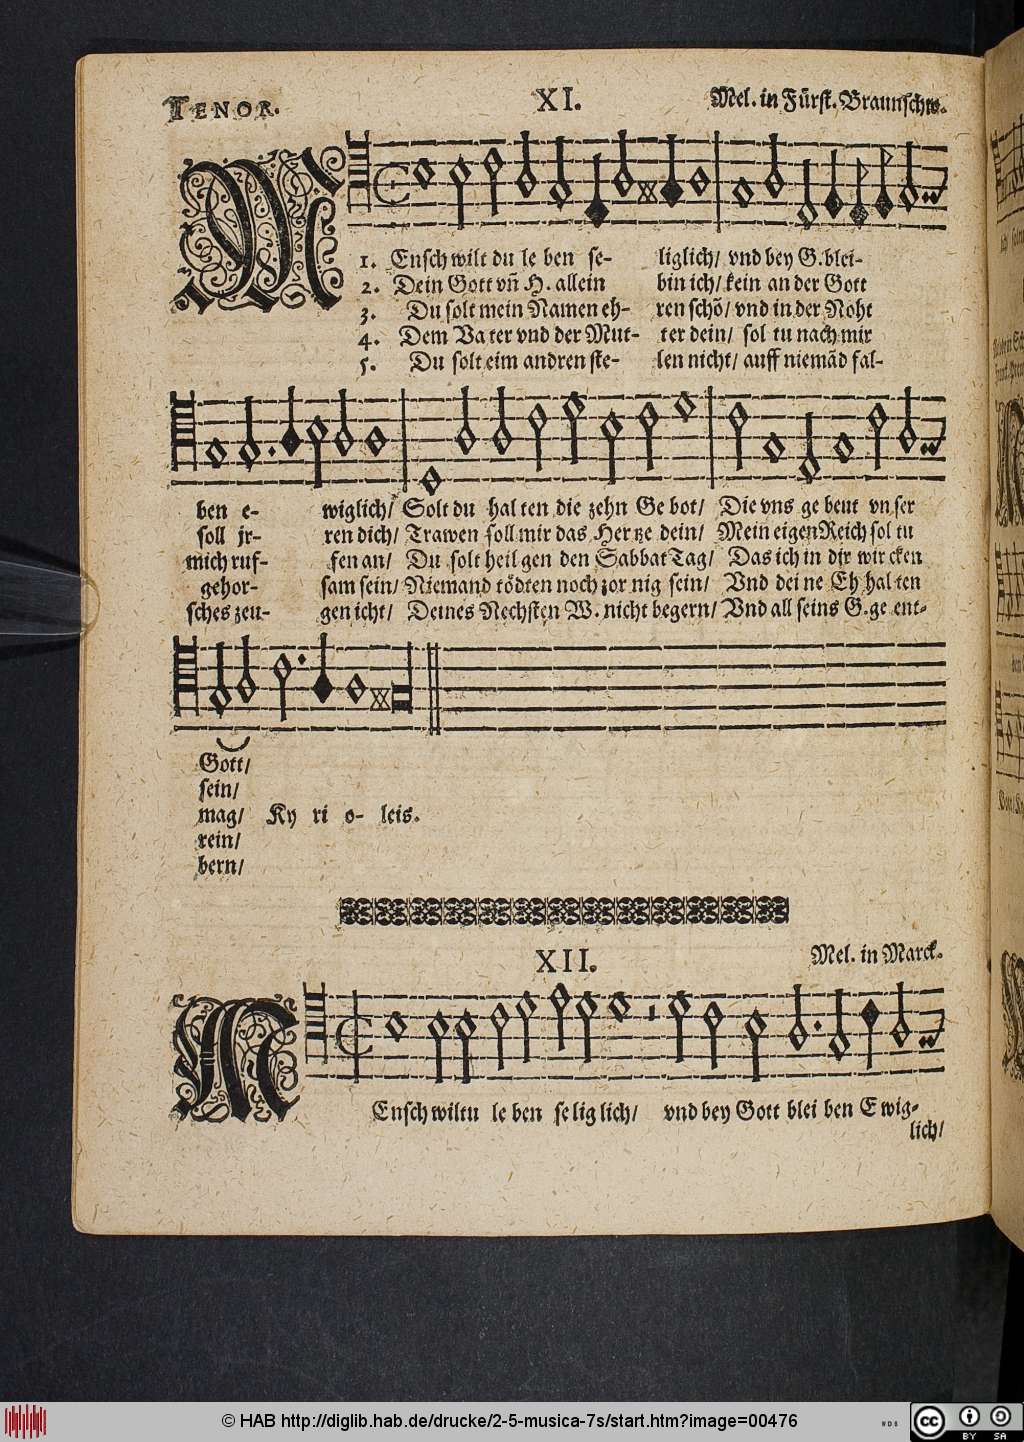 TENOR.
XI.
Mel. in Fürst. Braunschw.
MEnsch wilt du le ben se- liglich/ vnd bey G. blei-
1.
2. Dein Gott vñ H. allein bin ich/ kein an der Gott
3. Du solt mein Namen eh- ren schõ/ vnd in der Noht
4. Dem Va ter vnd der Mut- ter dein/ sol tu nach mir
5. Du solt eim andren ste- len nicht/ auff niemãd fal-
ben e- wiglich/ Solt du hal ten die zehn Ge bot/ Die vns ge beut vn ser
soll jr- ren dich/ Trawen soll mir das Her tze dein/ Mein eigen Reich sol tu
mich ruf- fen an/ Du solt heil gen den Sabbat Tag/ Das ich in dir wir cken
gehor- sam sein/ Niemand tödten noch zor nig sein/ Vnd dei ne Eh hal ten
sches zeu- gen icht/ Deines Nechsten W. nicht begern/ Vnd all seins G. ge ent-
Gott/
sein/
mag/ Ky ri o- leis.
rein/
bern/
XII.
Mel. in Marck.
MEnsch wiltu le ben se lig lich/ vnd bey Gott blei ben E wig-
lich/
© HAB http://diglib.hab.de/drucke/2-5-musica-7s/start.htm?image=00476
cc BY SA